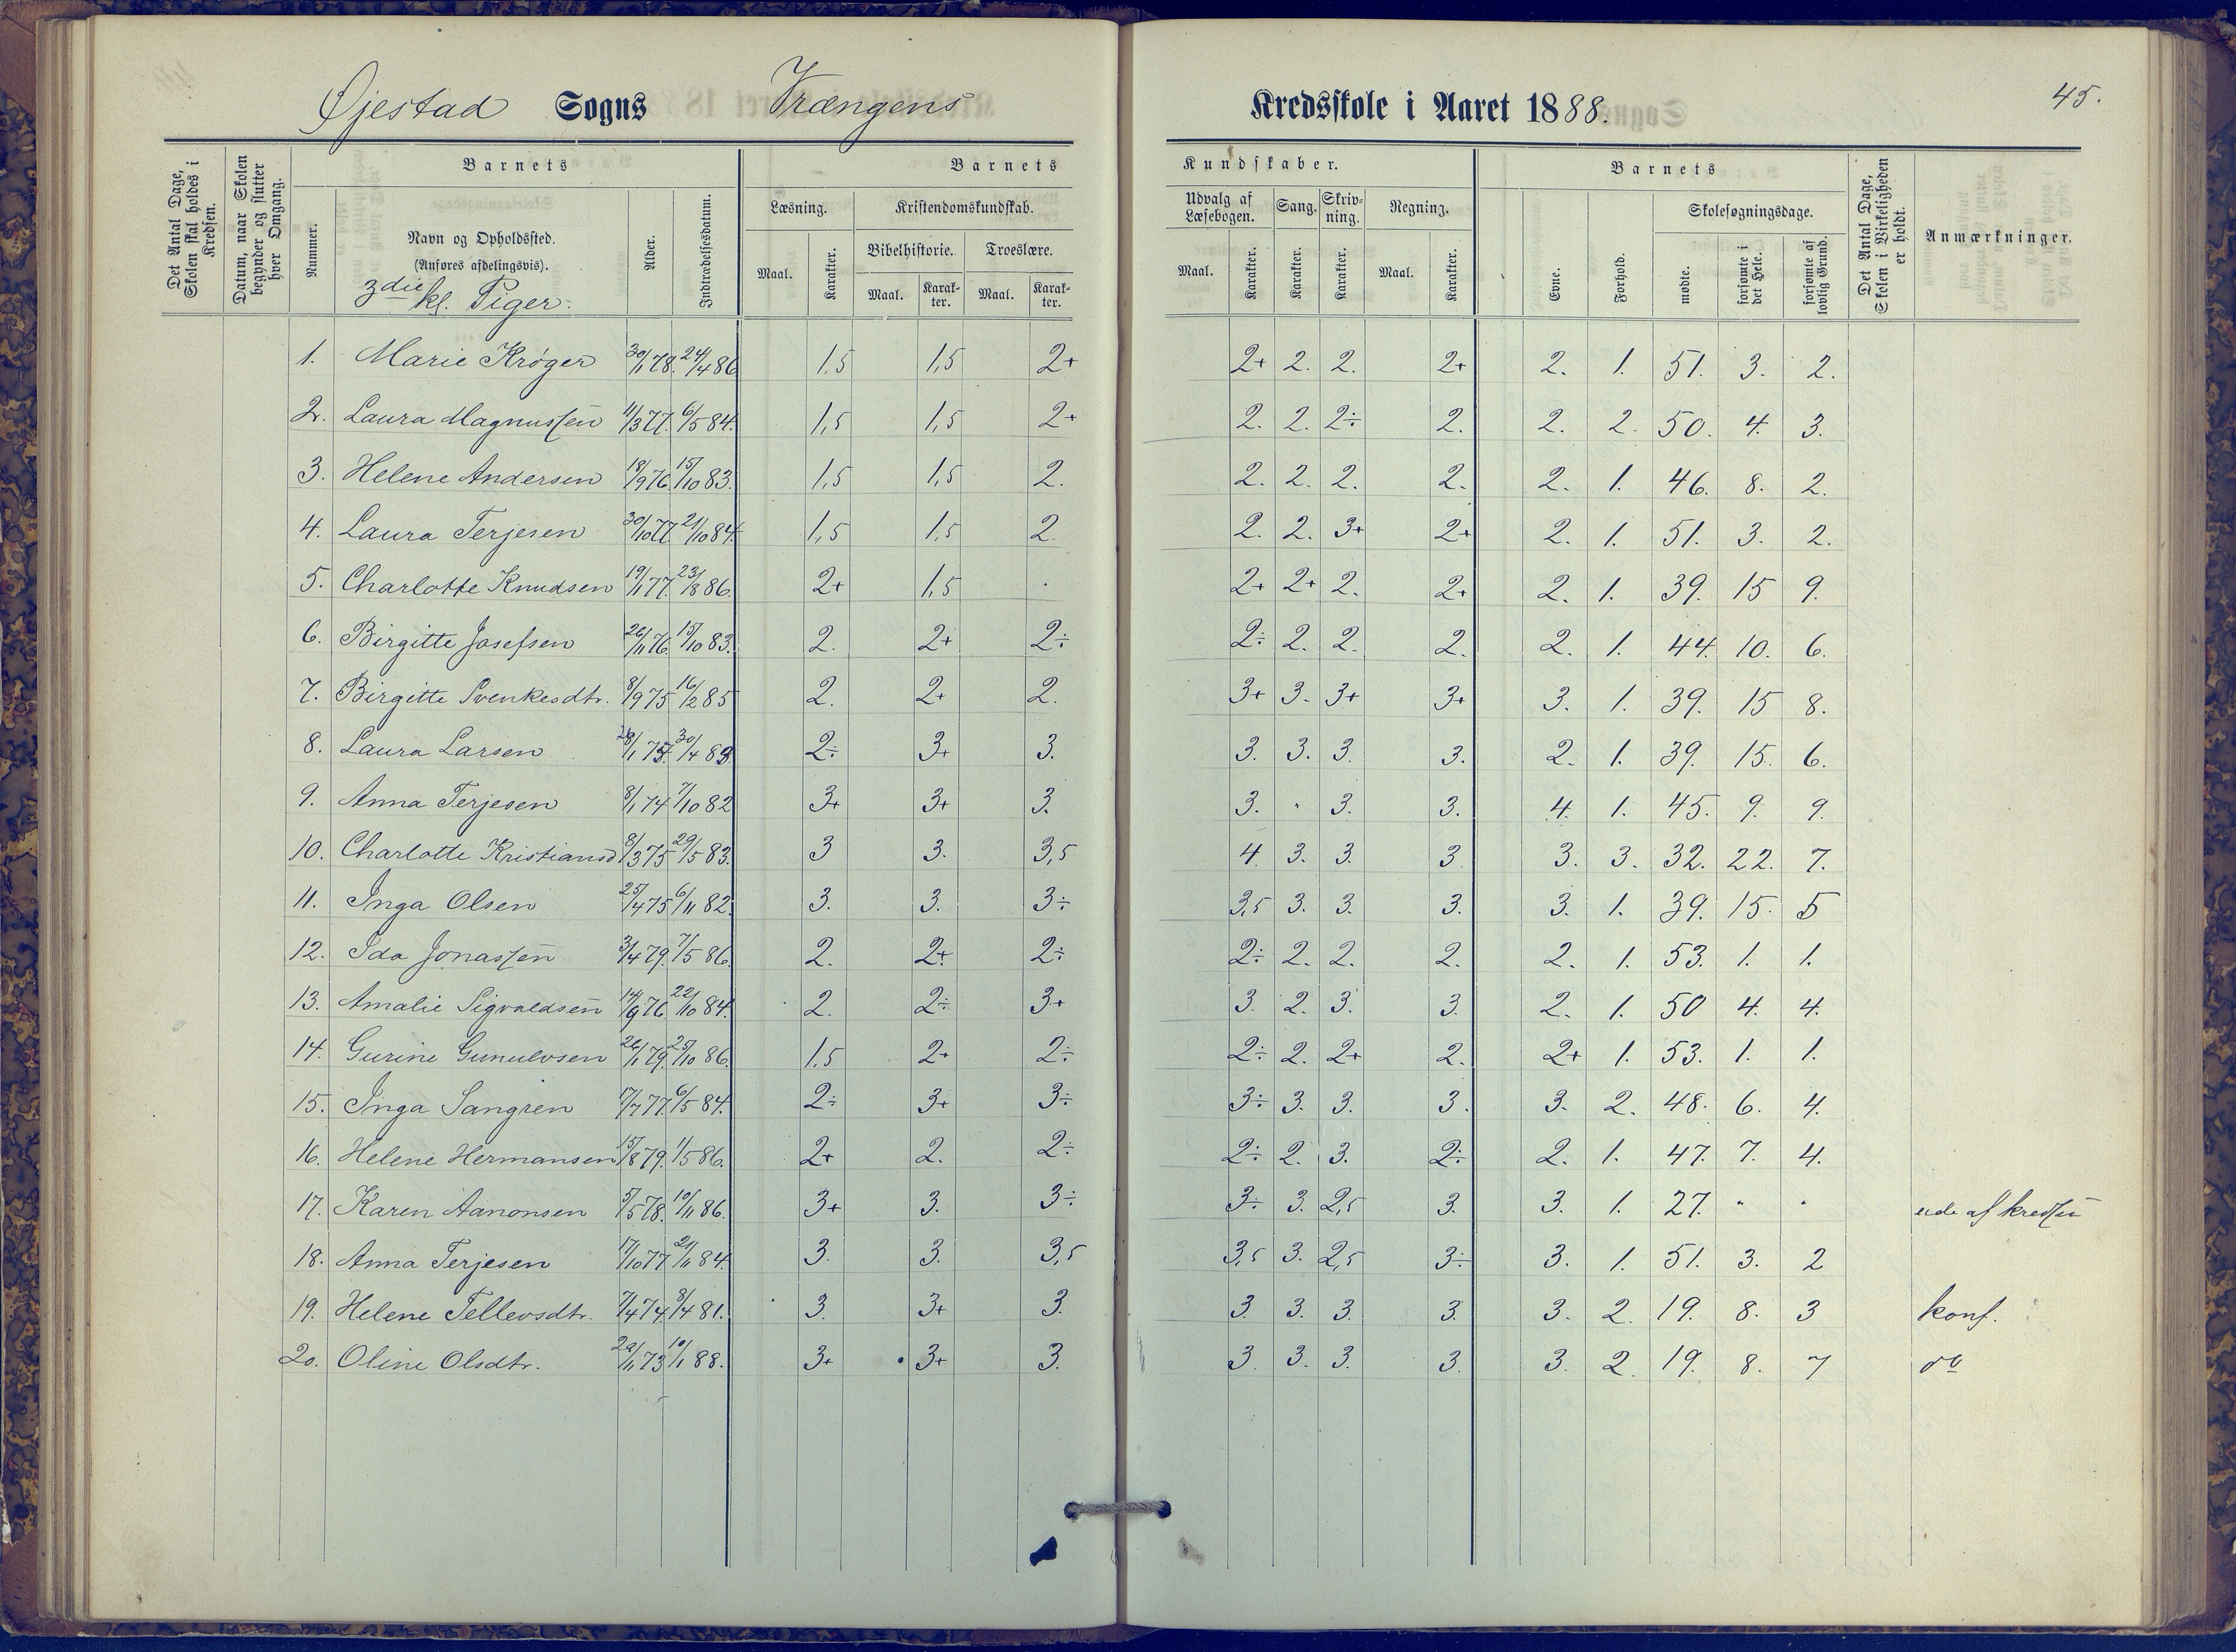 Øjestad Sogns Vrængens Kredsskole i Aaret 1888. 45.
Det Antal Dage, Skolen skal holdes i Kredsen.
Datum, naar Skolen begynder og slutter hver Omgang.
Barnets
Nummer.
Navn og Opholdssted.
(Anføres afdelingsvis).
3die kl. Piger.
Alder.
Indtrædelsesdatum.
Barnets Kundskaber.
Læsning. Kristendomskundskab. Udvalg af Læsebogen. Sang. Skrivning. Regning.
Bibelhistorie. Troeslære.
Maal. Karakter. Maal. Karakter. Maal. Karakter. Maal. Karakter. Karakter. Karakter. Maal. Karakter.
Barnets
Evne. Forhold. Skolesøgningsdage.
mødte. forsømte i det Hele. forsømte af lovlig Grund.
Det Antal Dage, Skolen i Virkeligheden er holdt.
Anmærkninger.
1. Marie Krøger 30/1 78. 24/4 86 1,5 1,5 2+ 2+ 2. 2. 2+ 2. 1. 51. 3. 2.
2. Laura Magnussen 11/3 77. 6/5 84. 1,5 1,5 2+ 2. 2. 2÷ 2. 2. 2. 50. 4. 3.
3. Helene Andersen 18/9 76. 15/10 83. 1,5 1,5 2. 2. 2. 2. 2. 2. 1. 46. 8. 2.
4. Laura Terjesen 30/10 77. 21/10 84. 1,5 1,5 2. 2. 2. 3+ 2+ 2. 1. 51. 3. 2.
5. Charlotte Knudsen 19/1 77. 23/8 86. 2+ 1,5 . 2+ 2+ 2. 2+ 2. 1. 39. 15 9.
6. Birgitte Josefsen 26/11 76. 15/10 83. 2. 2+ 2÷ 2÷ 2. 2. 2. 2. 1. 44. 10. 6.
7. Birgitte Svenkesdtr. 8/9 75 16/2 85 2. 2+ 2. 3+ 3. 3+ 3+ 3. 1. 39. 15 8.
8. Laura Larsen 30/4 83 2÷ 3+ 3. 3. 3. 3. 3. 2. 1. 39. 15. 6.
9. Anna Terjesen 8/1 74 7/10 82 3+ 3+ 3. 3. " 3. 3. 4. 1. 45. 9. 9.
10. Charlotte Kristiansd 8/3 75 29/5 83. 3 3. 3,5 4. 3. 3. 3 3. 3. 32. 22. 7.
11. Inga Olsen 25/4 75 6/11 82. 3. 3. 3÷ 3,5 3. 3. 3. 3. 1. 39. 15. 5
12. Ida Jonassen 3/4 79. 7/5 86. 2. 2+ 2÷ 2÷ 2. 2. 2. 2. 1. 53. 1. 1.
13. Amalie Sigvaldsen 14/9 76 22/10 84. 2. 2÷ 3+ 3. 2. 3. 3. 2. 1. 50 4. 4.
14. Gurine Gunulvsen 26/1 79. 25/10 86. 1,5 2+ 2÷ 2÷ 2. 2+ 2. 2+ 1. 53. 1. 1.
15. Inga Sangren 17/7 77. 6/5 84. 2÷ 3+ 3÷ 3÷ 3. 3. 3. 3. 2. 48. 6. 4.
16. Helene Hermansen 15/8 79. 1/5 86. 2+ 2. 2÷ 2÷ 2. 3. 2÷ 2. 1. 47. 7. 4.
17. Karen Aanonsen 5/5 78. 10/11 86. 3+ 3. 3÷ 3÷ 3. 2,5 3. 3. 1. 27. " " ude af kredsen
18. Anna Terjesen 17/10 77 21/11 84. 3. 3. 3,5 3,5 3. 2,5 3÷ 3. 1. 51. 3. 2
19. Helene Tellevsdtr. 7/4 74. 8/4 81. 3. 3+ 3. 3. 3. 3. 3. 3. 2. 19. 8. 3 konf.
20. Oline Olsdtr. 29/11 73 10/1 88. 3+ 3+ 3. 3. 3. 3. 3. 3. 2. 19. 8. 7 do